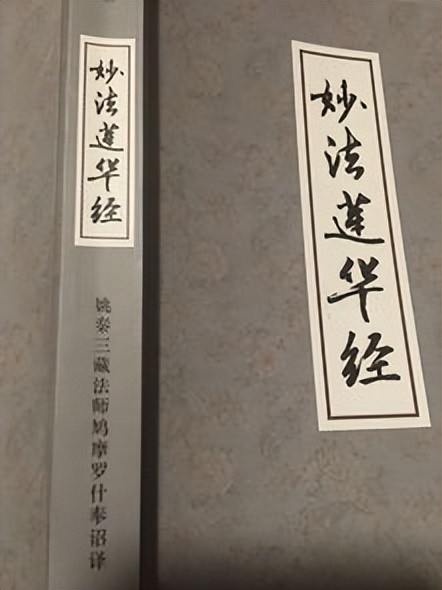 妙法莲华经
姚秦三藏法师鸠摩罗什奉诏译
妙法莲华经